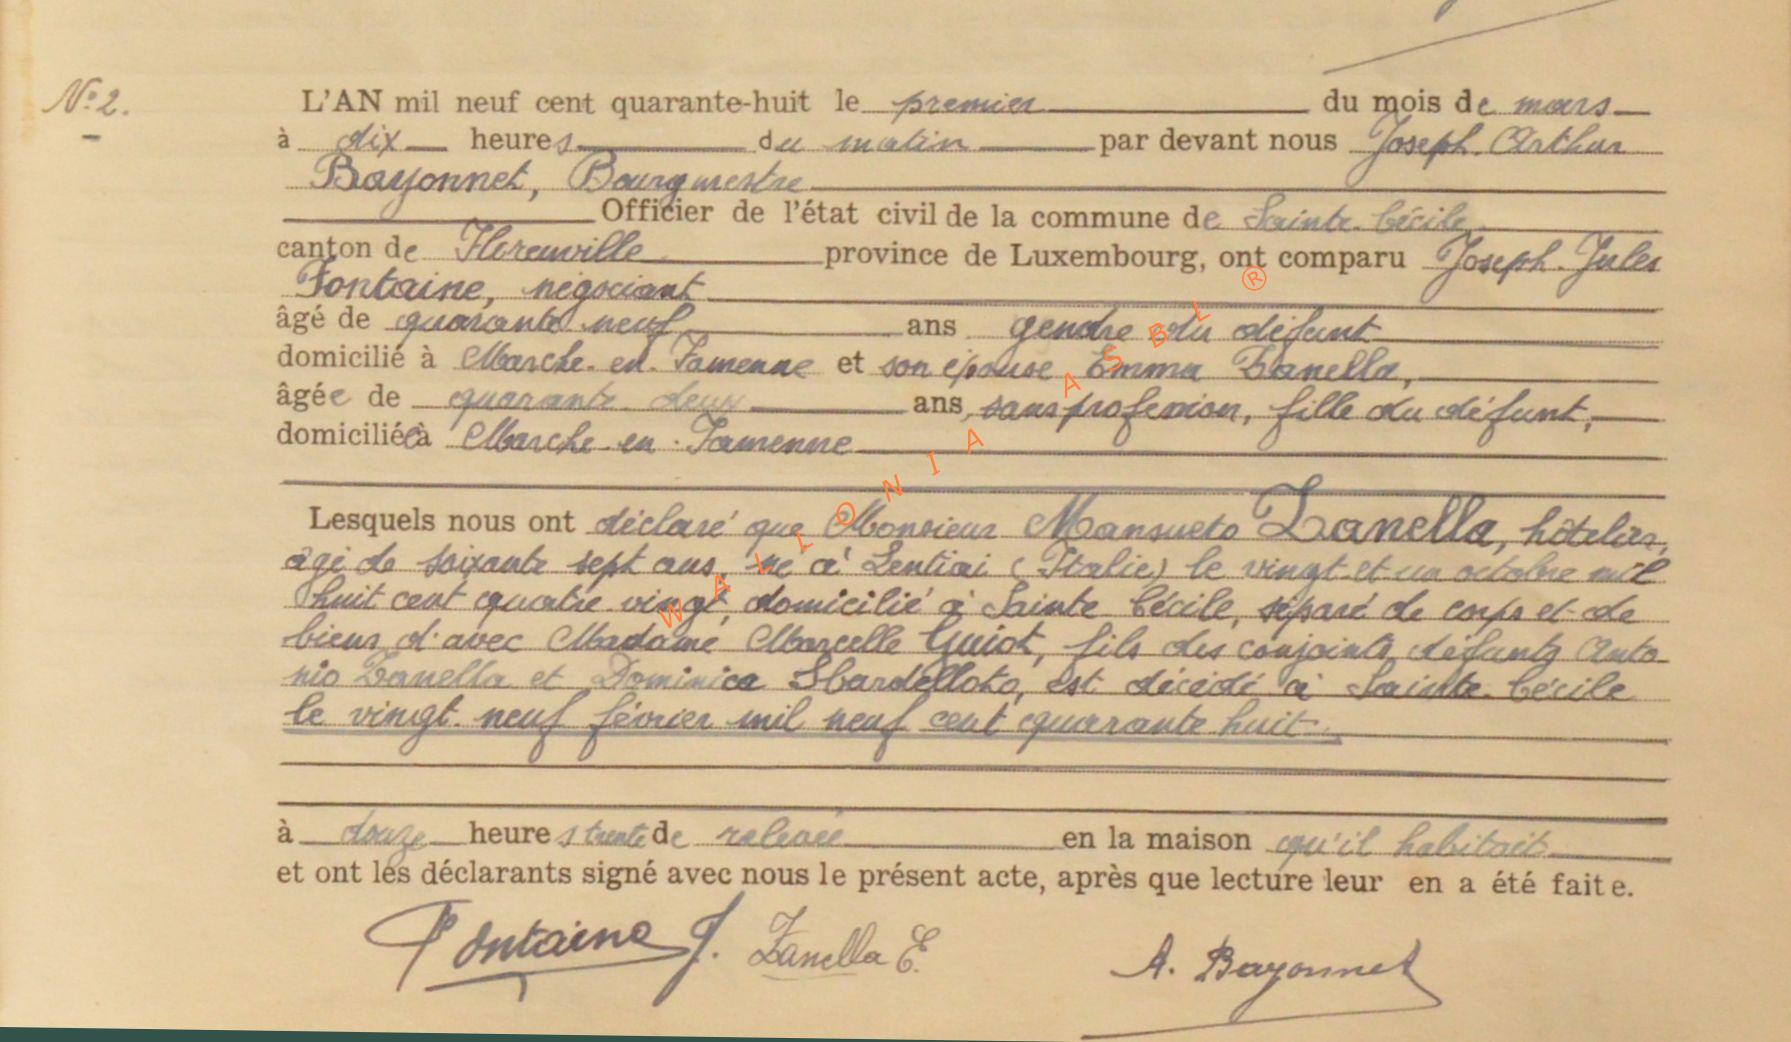 N° 2.
L'AN mil neuf cent quarante-huit le premier du mois de mars
à dix heures du matin par devant nous Joseph. Arthur
Bayonnet, Bourgmestre
Officier de l'état civil de la commune de Sainte-Cécile,
canton de Florenville province de Luxembourg, ont comparu Joseph. Jules
Fontaine, négociant
âgé de quarante neuf ans gendre du défunt
domicilié à Marche-en-Famenne et son épouse Emma Zanella,
âgée de quarante deux ans, sans profession, fille du défunt,
domiciliée à Marche-en-Famenne
Lesquels nous ont déclaré que Monsieur Mansueto Zanella, hôtelier,
âgé de soixante sept ans, né à Lentiai (Italie) le vingt et un octobre mil
huit cent quatre vingt, domicilié à Sainte Cécile, séparé de corps et de
biens d'avec Madame Marcelle Guiot, fils des conjoints défunts Anto-
nio Zanella et Dominica Sbardelloto, est décédé à Sainte-Cécile
le vingt-neuf février mil neuf cent quarante huit
à douze heures trente de relevée en la maison qu'il habitait
et ont les déclarants signé avec nous le présent acte, après que lecture leur en a été faite.
Fontaine J. Zanella E. A. Bayonnet
WALLONIA ASBL ®